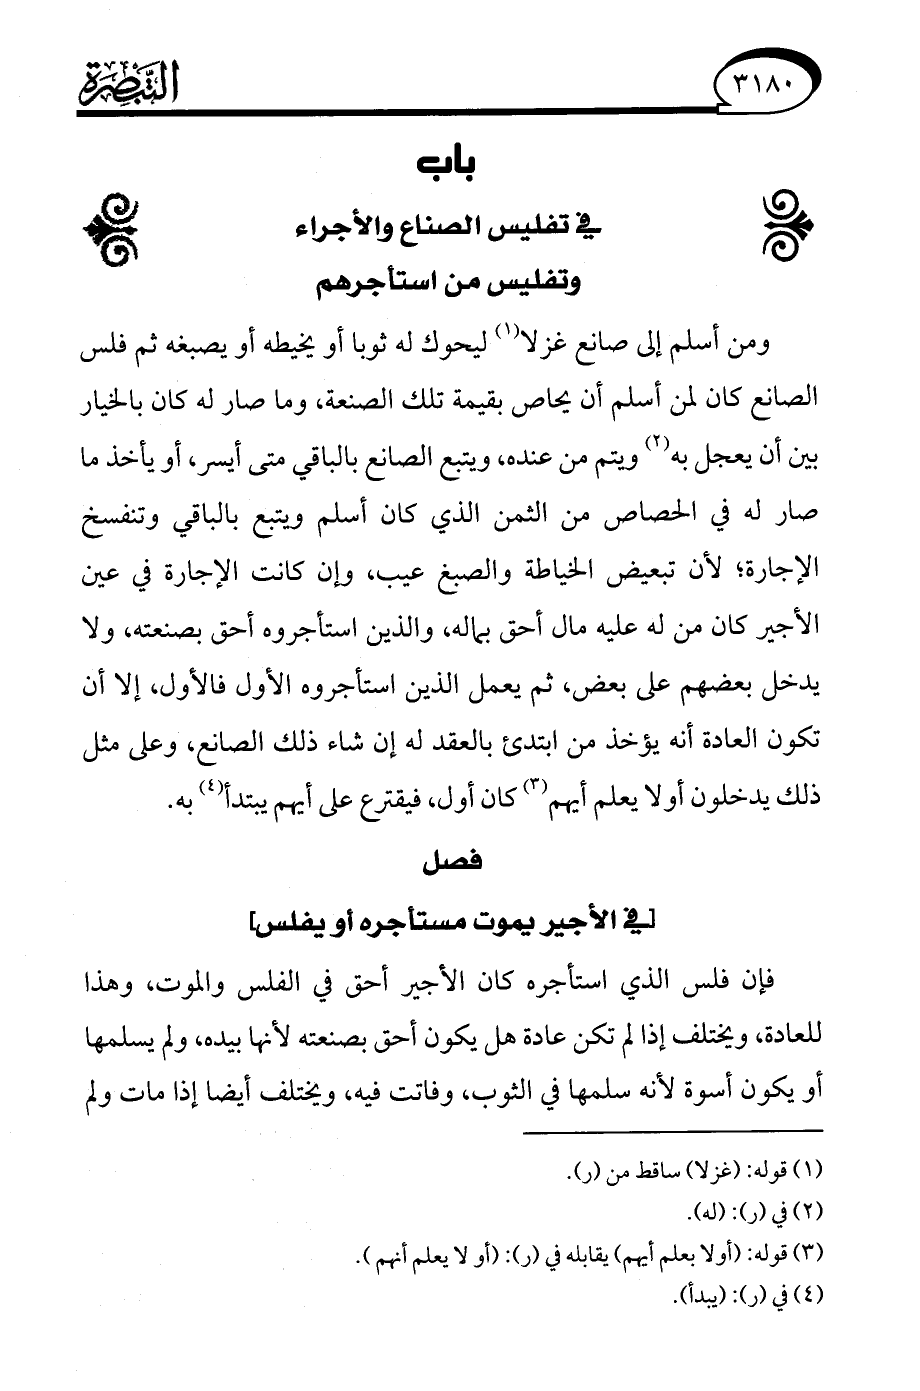 ٣١٨٠
التبصرة
باب
في تفليس الصناع والأجراء
وتفليس من استأجرهم
ومن أسلم إلى صانع غزلا(١) ليحوك له ثوبا أو يخيطه أو يصبغه ثم فلس
الصانع كان لمن أسلم أن يحاص بقيمة تلك الصنعة، وما صار له كان بالخيار
بين أن يعجل به(٢) ويتم من عنده، ويتبع الصانع بالباقي متى أيسر، أو يأخذ ما
صار له في الحصاص من الثمن الذي كان أسلم ويتبع بالباقي وتنفسخ
الإجارة؛ لأن تبعيض الخياطة والصبغ عيب، وإن كانت الإجارة في عين
الأجير كان من له عليه مال أحق بماله، والذين استأجروه أحق بصنعته، ولا
يدخل بعضهم على بعض، ثم يعمل الذين استأجروه الأول فالأول، إلا أن
تكون العادة أنه يؤخذ من ابتدئ بالعقد له إن شاء ذلك الصانع، وعلى مثل
ذلك يدخلون أولا يعلم أيهم(٣) كان أول، فيقترع على أيهم يبتدأ(٤) به.
فصل
[في الأجير يموت مستأجره أو يفلس]
فإن فلس الذي استأجره كان الأجير أحق في الفلس والموت، وهذا
للعادة، ويختلف إذا لم تكن عادة هل يكون أحق بصنعته لأنها بيده، ولم يسلمها
أو يكون أسوة لأنه سلمها في الثوب، وفاتت فيه، ويختلف أيضا إذا مات ولم
(١) قوله: (غزلا) ساقط من (ر).
(٢) في (ر): (له).
(٣) قوله: (أولا يعلم أيهم) يقابله في (ر): (أو لا يعلم أنهم ).
(٤) في (ر): (يبدأ).